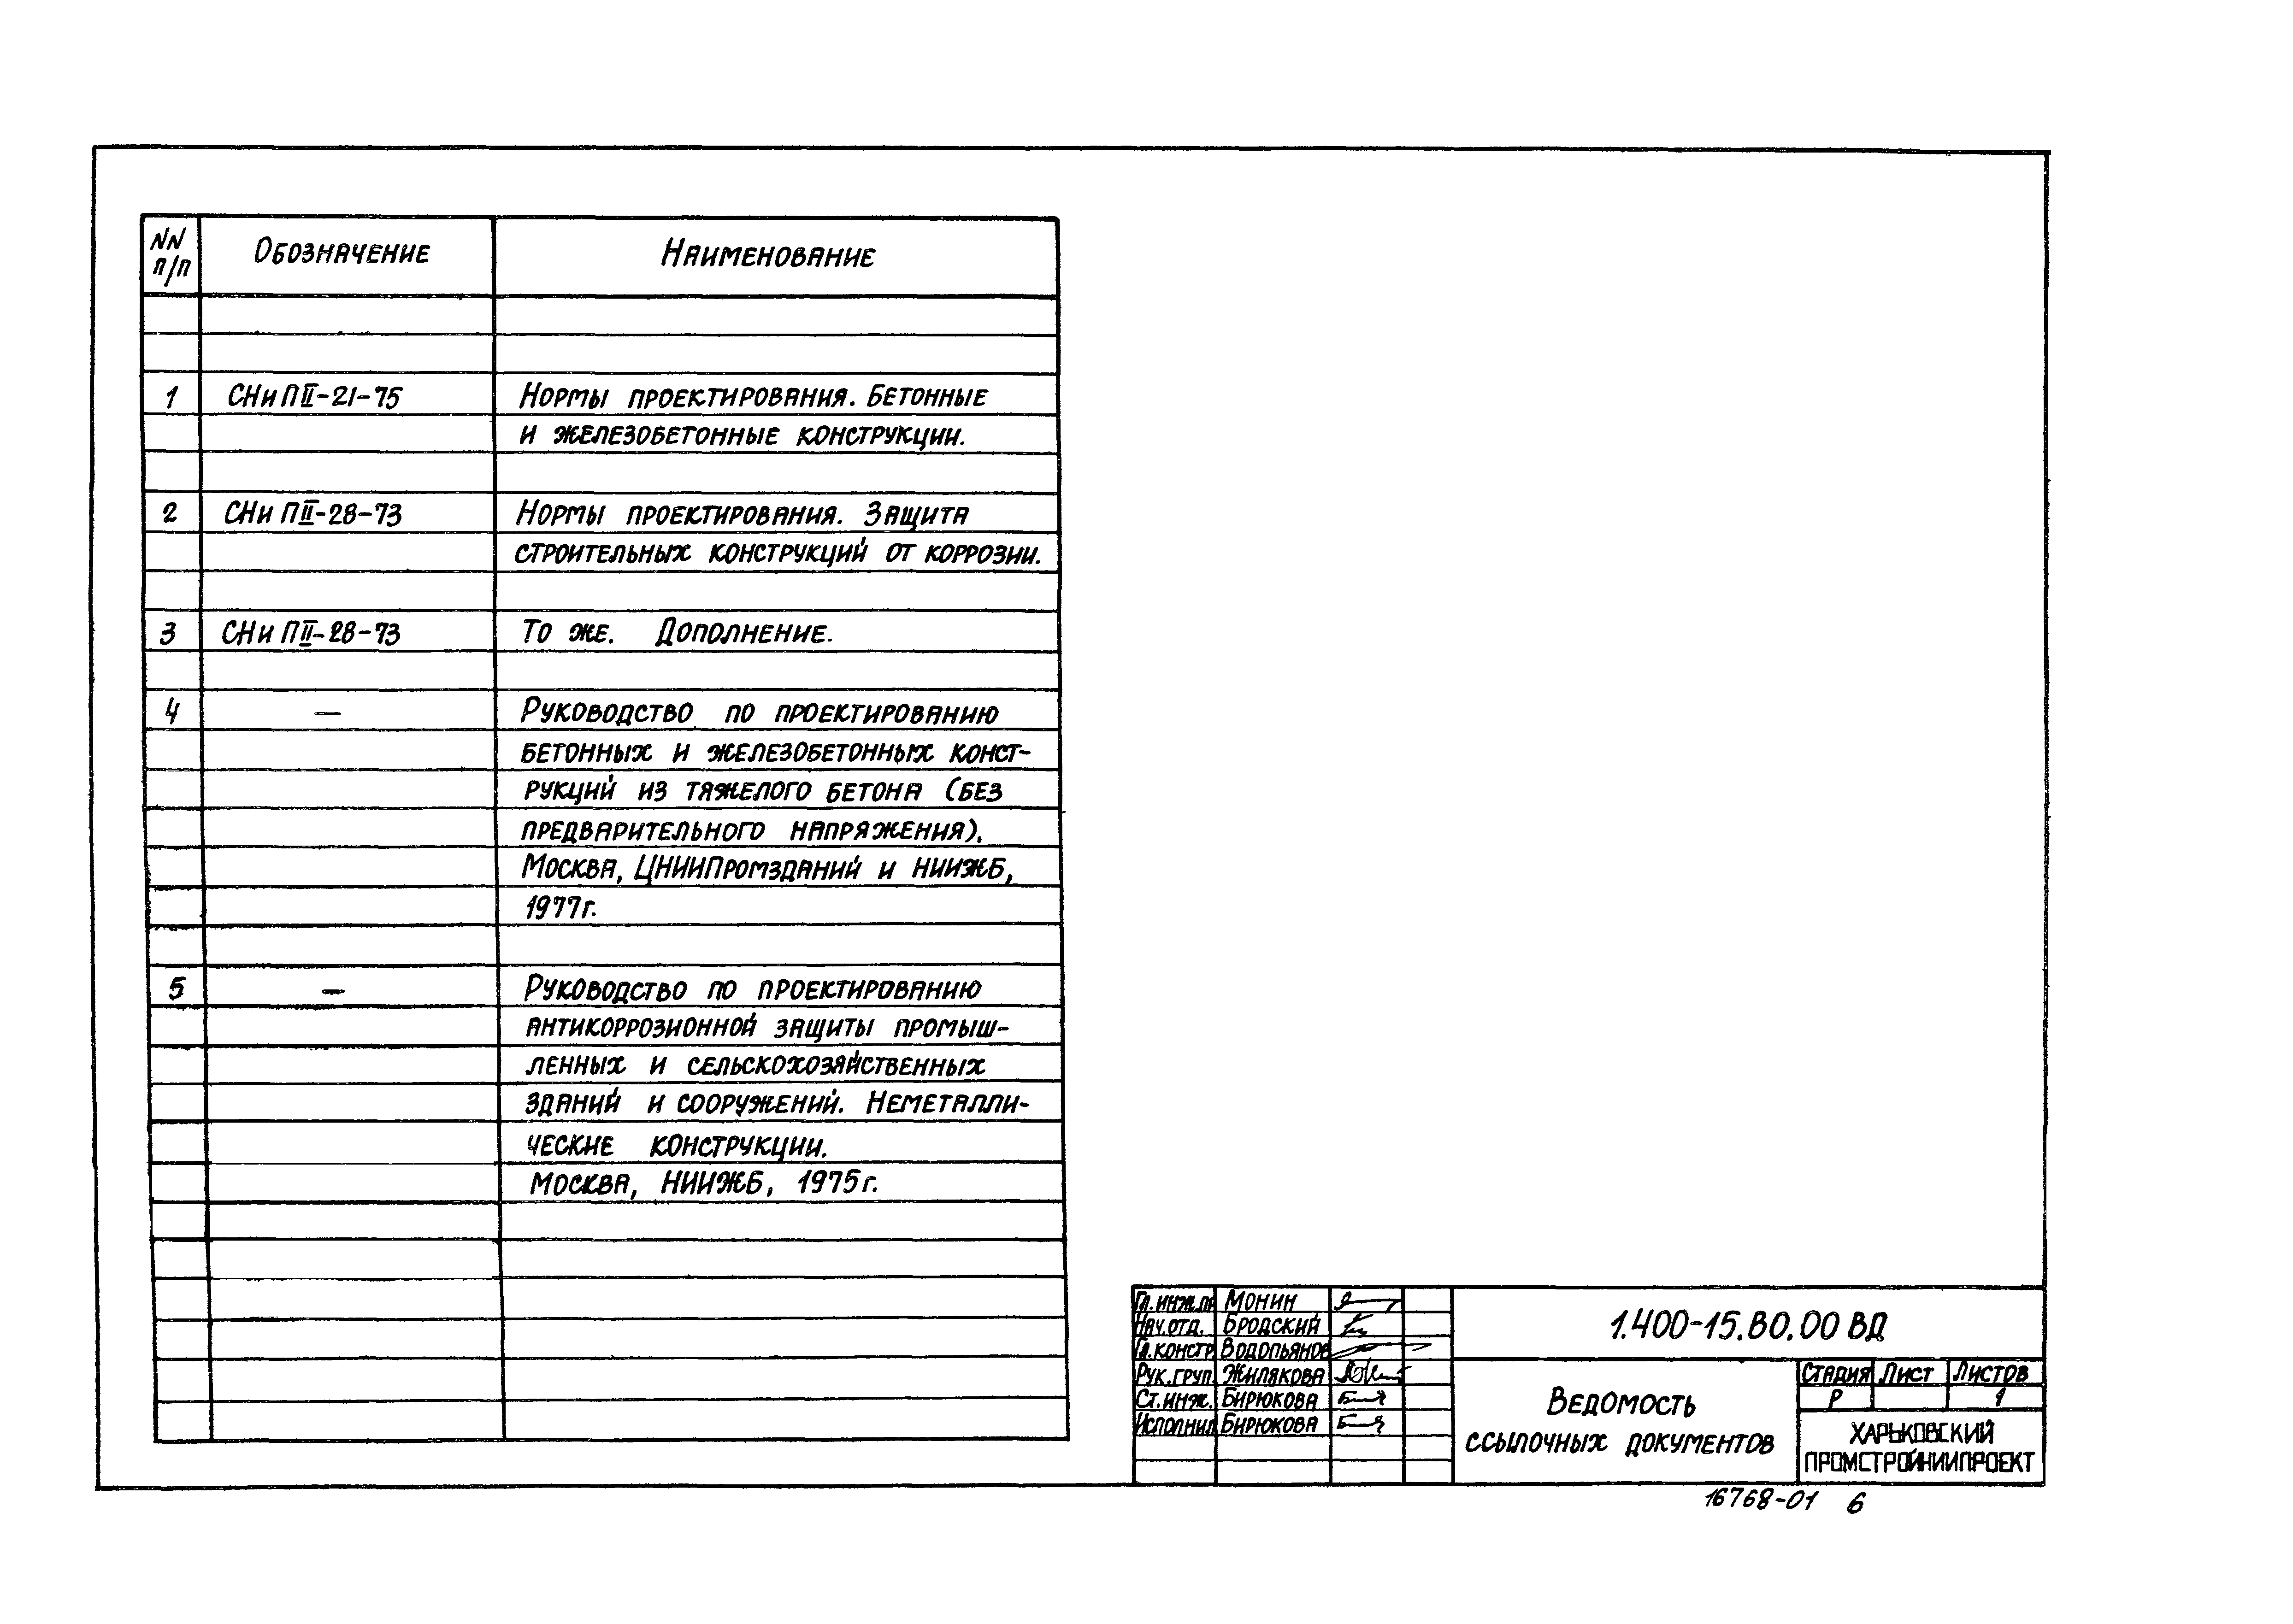 NN п/п Обозначение Наименование
1 СНиП II-21-75 Нормы проектирования. Бетонные
и железобетонные конструкции.
2 СНиП II-28-73 Нормы проектирования. Защита
строительных конструкций от коррозии.
3 СНиП II-28-73 То же. Дополнение.
4 — Руководство по проектированию
бетонных и железобетонных конст-
рукций из тяжелого бетона (без
предварительного напряжения).
Москва, ЦНИИПромзданий и НИИЖБ,
1977г.
5 — Руководство по проектированию
антикоррозионной защиты промыш-
ленных и сельскохозяйственных
зданий и сооружений. Неметалли-
ческие конструкции.
Москва, НИИЖБ, 1975г.
Гл.инж.пр Монин
Нач.отд. Бродский
Гл.констр. Водопьянов
Рук.груп. Жилякова
Ст.инж. Бирюкова
Исполнил Бирюкова
1.400-15.В0.00 ВД
Ведомость
ссылочных документов
Стадия Лист Листов
Р 1
ХАРЬКОВСКИЙ
ПРОМСТРОЙНИИПРОЕКТ
16768-01 6